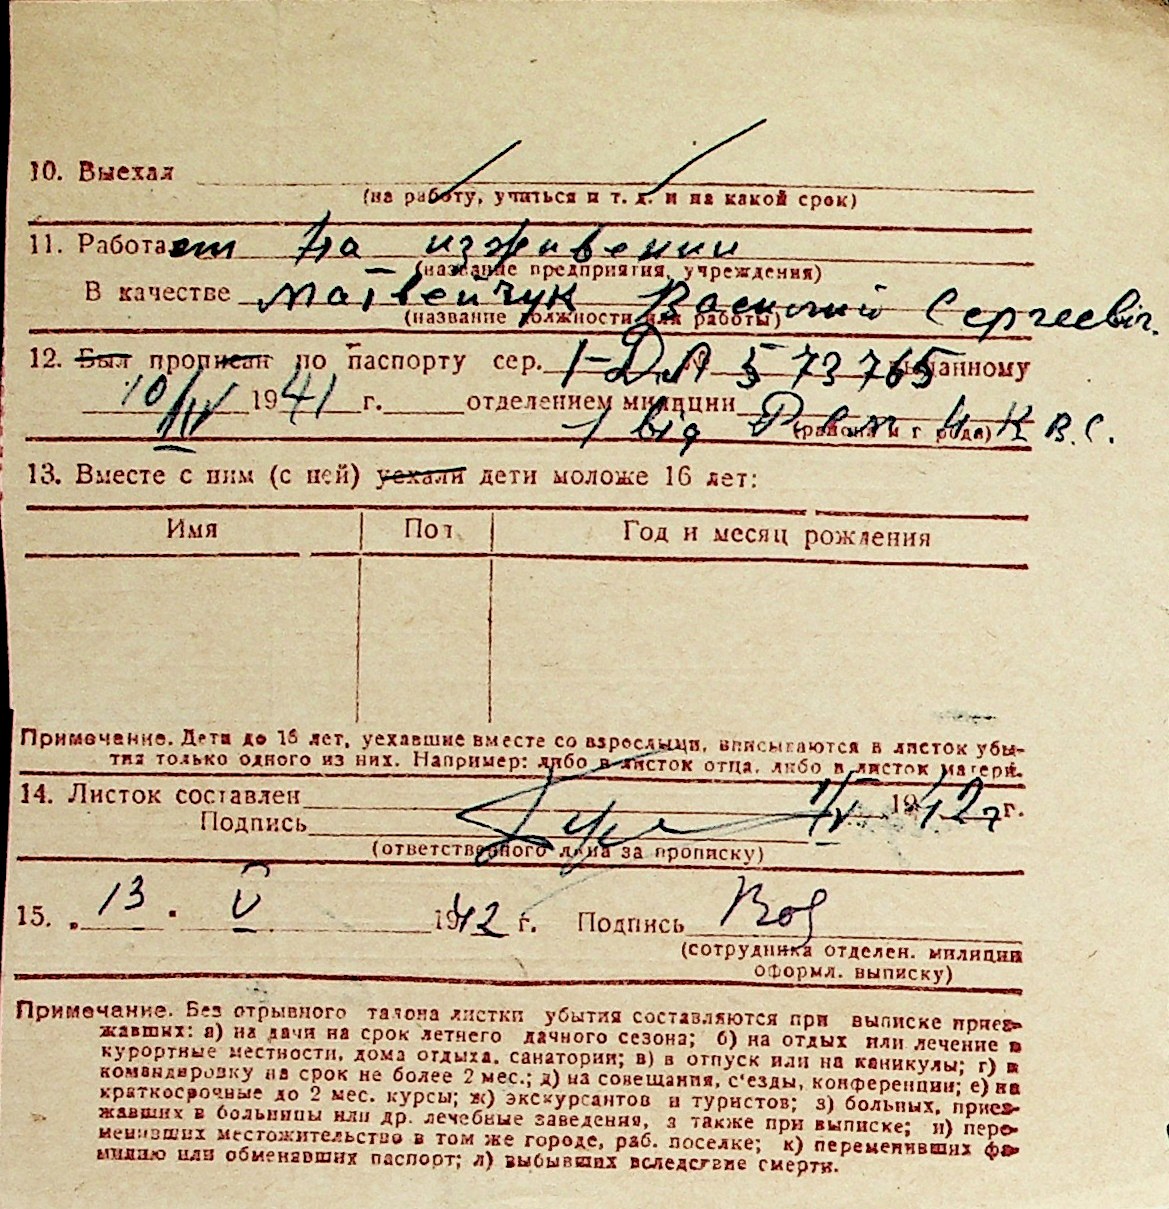 10. Выехал
(на работу, учиться и т. д. и на какой срок)
11. Работает На изживении
(название предприятия, учреждения)
В качестве Матвейчук Василий Сергеевіч.
(название должности или работы)
12. Был прописан по паспорту сер. 1-ДЛ 573765 выданному
10/IV 1941 г. отделением милиции 1 від Рвк Н.К.В.С.
(района и города)
13. Вместе с ним (с ней) уехали дети моложе 16 лет:
Имя Пол Год и месяц рождения
Примечание. Дети до 16 лет, уехавшие вместе со взрослыми, вписываются в листок убы-
тия только одного из них. Например: либо в листок отца, либо в листок матери.
14. Листок составлен 1/V 1942 г.
Подпись
(ответственного лица за прописку)
15. „13. V 1942 г. Подпись
(сотрудника отделен. милиции
оформл. выписку)
Примечание. Без отрывного талона листки убытия составляются при выписке приез-
жавших: а) на дачи на срок летнего дачного сезона; б) на отдых или лечение в
курортные местности, дома отдыха, санатории; в) в отпуск или на каникулы; г) в
командировку на срок не более 2 мес.; д) на совещания, с'езды, конференции; е) на
краткосрочные до 2 мес. курсы; ж) экскурсантов и туристов; з) больных, приез-
жавших в больницы или др. лечебные заведения, а также при выписке; и) пере-
менивших местожительство в том же городе, раб. поселке; к) переменивших фа-
милию или обменявших паспорт; л) выбывших вследствие смерти.